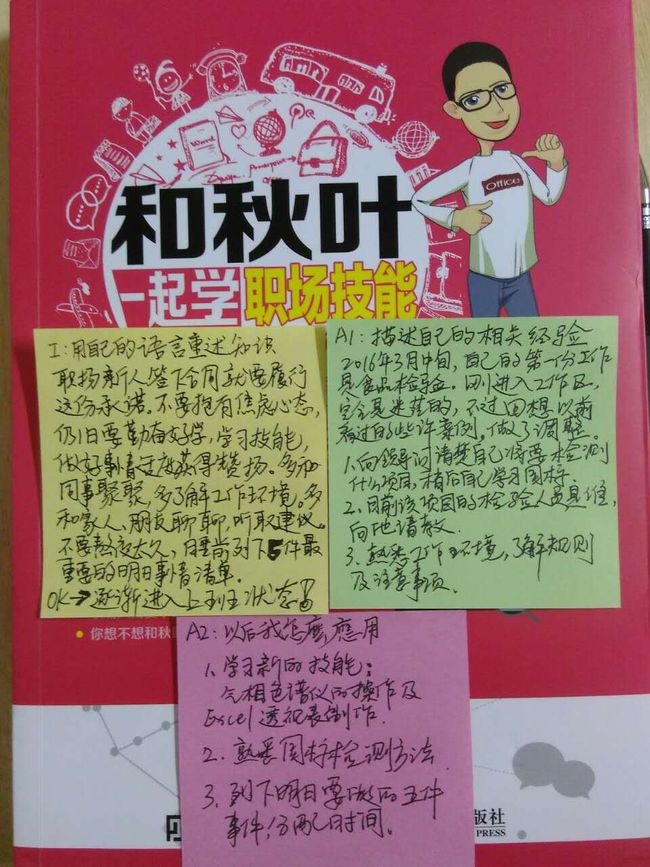 Word
Powerpoint
Office
和秋叶
一起学 职场技能
I:用自己的语言重述知识
职场新人签下合同就要履行
这份承诺。不要抱有焦虑心态,
仍旧要勤奋好学,学习技能,
做好事情过度获得赞扬。多和
同事聚聚,多了解工作环境。多
和家人、朋友聊聊,听取建议。
不要熬夜太久,睡前列下5件最
重要的明日事情清单。
OK→逐渐进入上班状态
A1:描述自己的相关经验
2016年3月中旬,自己的第一份工作
是食品检验。刚进入工作区,
完全是迷茫的,不过回想以前
看过的些许案例,做了调整。
1.向领导问清楚自己将需要检测
什么项目,稍后自己学习国标。
2.目前该项目的检验人员是谁,
向他请教.
3.熟悉工作环境,了解规则
及注意事项.
你想不想和秋
A2:以后我怎麽應用
1.学习新的技能:
气相色谱仪的操作及
Excel透视表制作.
2.熟悉国标检测方法
3.列下明日要做的五件
事件,分配时间。
版社
PRESS